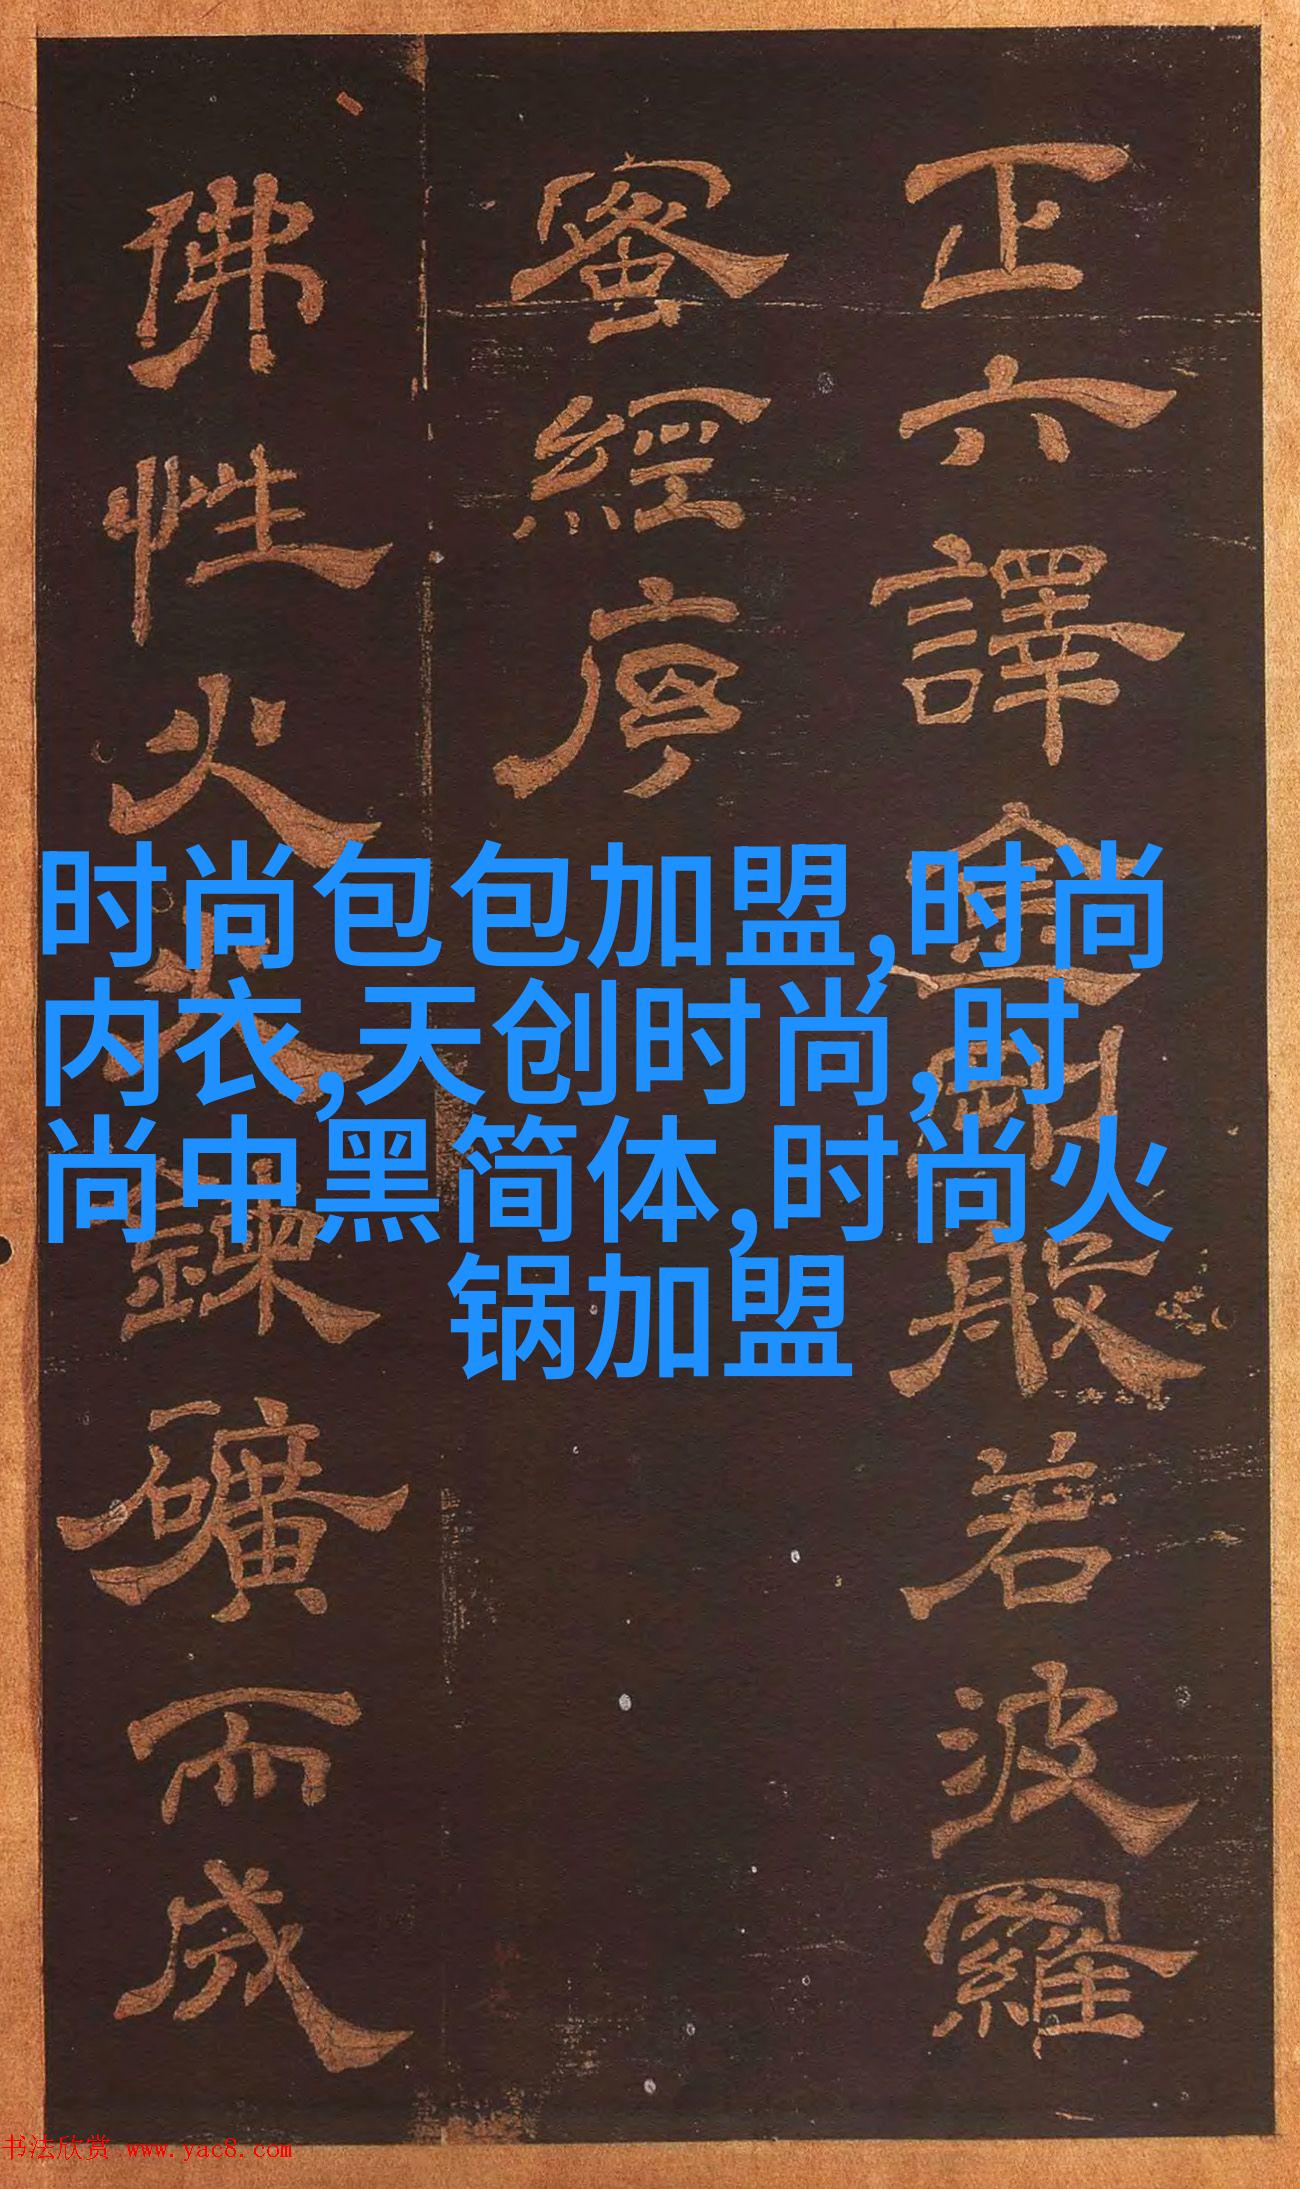 正六譯金剛般若波羅
蜜經序
佛性火煉鍊礦而成
时尚包包加盟,时尚
内衣,天创时尚,时
尚中黑简体,时尚火
锅加盟
书法欣赏 www.yac8.com